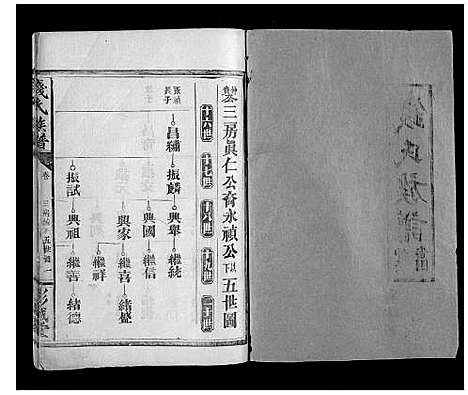 三房眞仁公裔永禎公以下五世圖
十六世 十七世 十八世 十九世 二十世
長子
昌繡 振麟 興舉 繼統
興國 繼信
興家 繼喜 緒盛
繼祥
振試 興祖 繼善 緒德
錢氏族譜 卷 五世圖 彭城堂
氏族譜